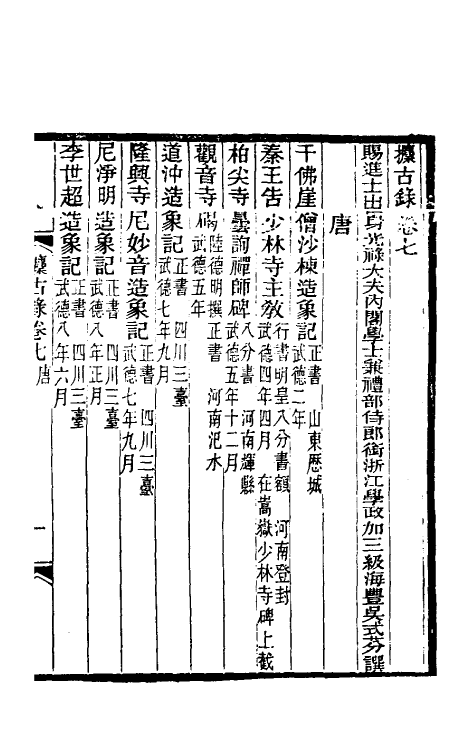 攗古錄 卷七
賜進士出身光祿大夫內閣學士兼禮部侍郎銜浙江學政加三級海豐吳式芬譔
唐
千佛崖僧沙棟造象記 正書 山東歷城 武德二年
秦王告少林寺主教 行書明皇八分書額 河南登封 武德四年四月 在嵩嶽少林寺碑上截
柏尖寺曇詢禪師碑 八分書 河南輝縣 武德五年十二月
觀音寺碣 陸德明撰正書 河南汜水 武德五年
道沖造象記 正書 四川三臺 武德七年九月
隆興寺尼妙音造象記 正書 四川三臺 武德七年九月
尼淨明造象記 正書 四川三臺 武德八年正月
李世超造象記 正書 四川三臺 武德八年六月
攗古錄卷七 唐 一